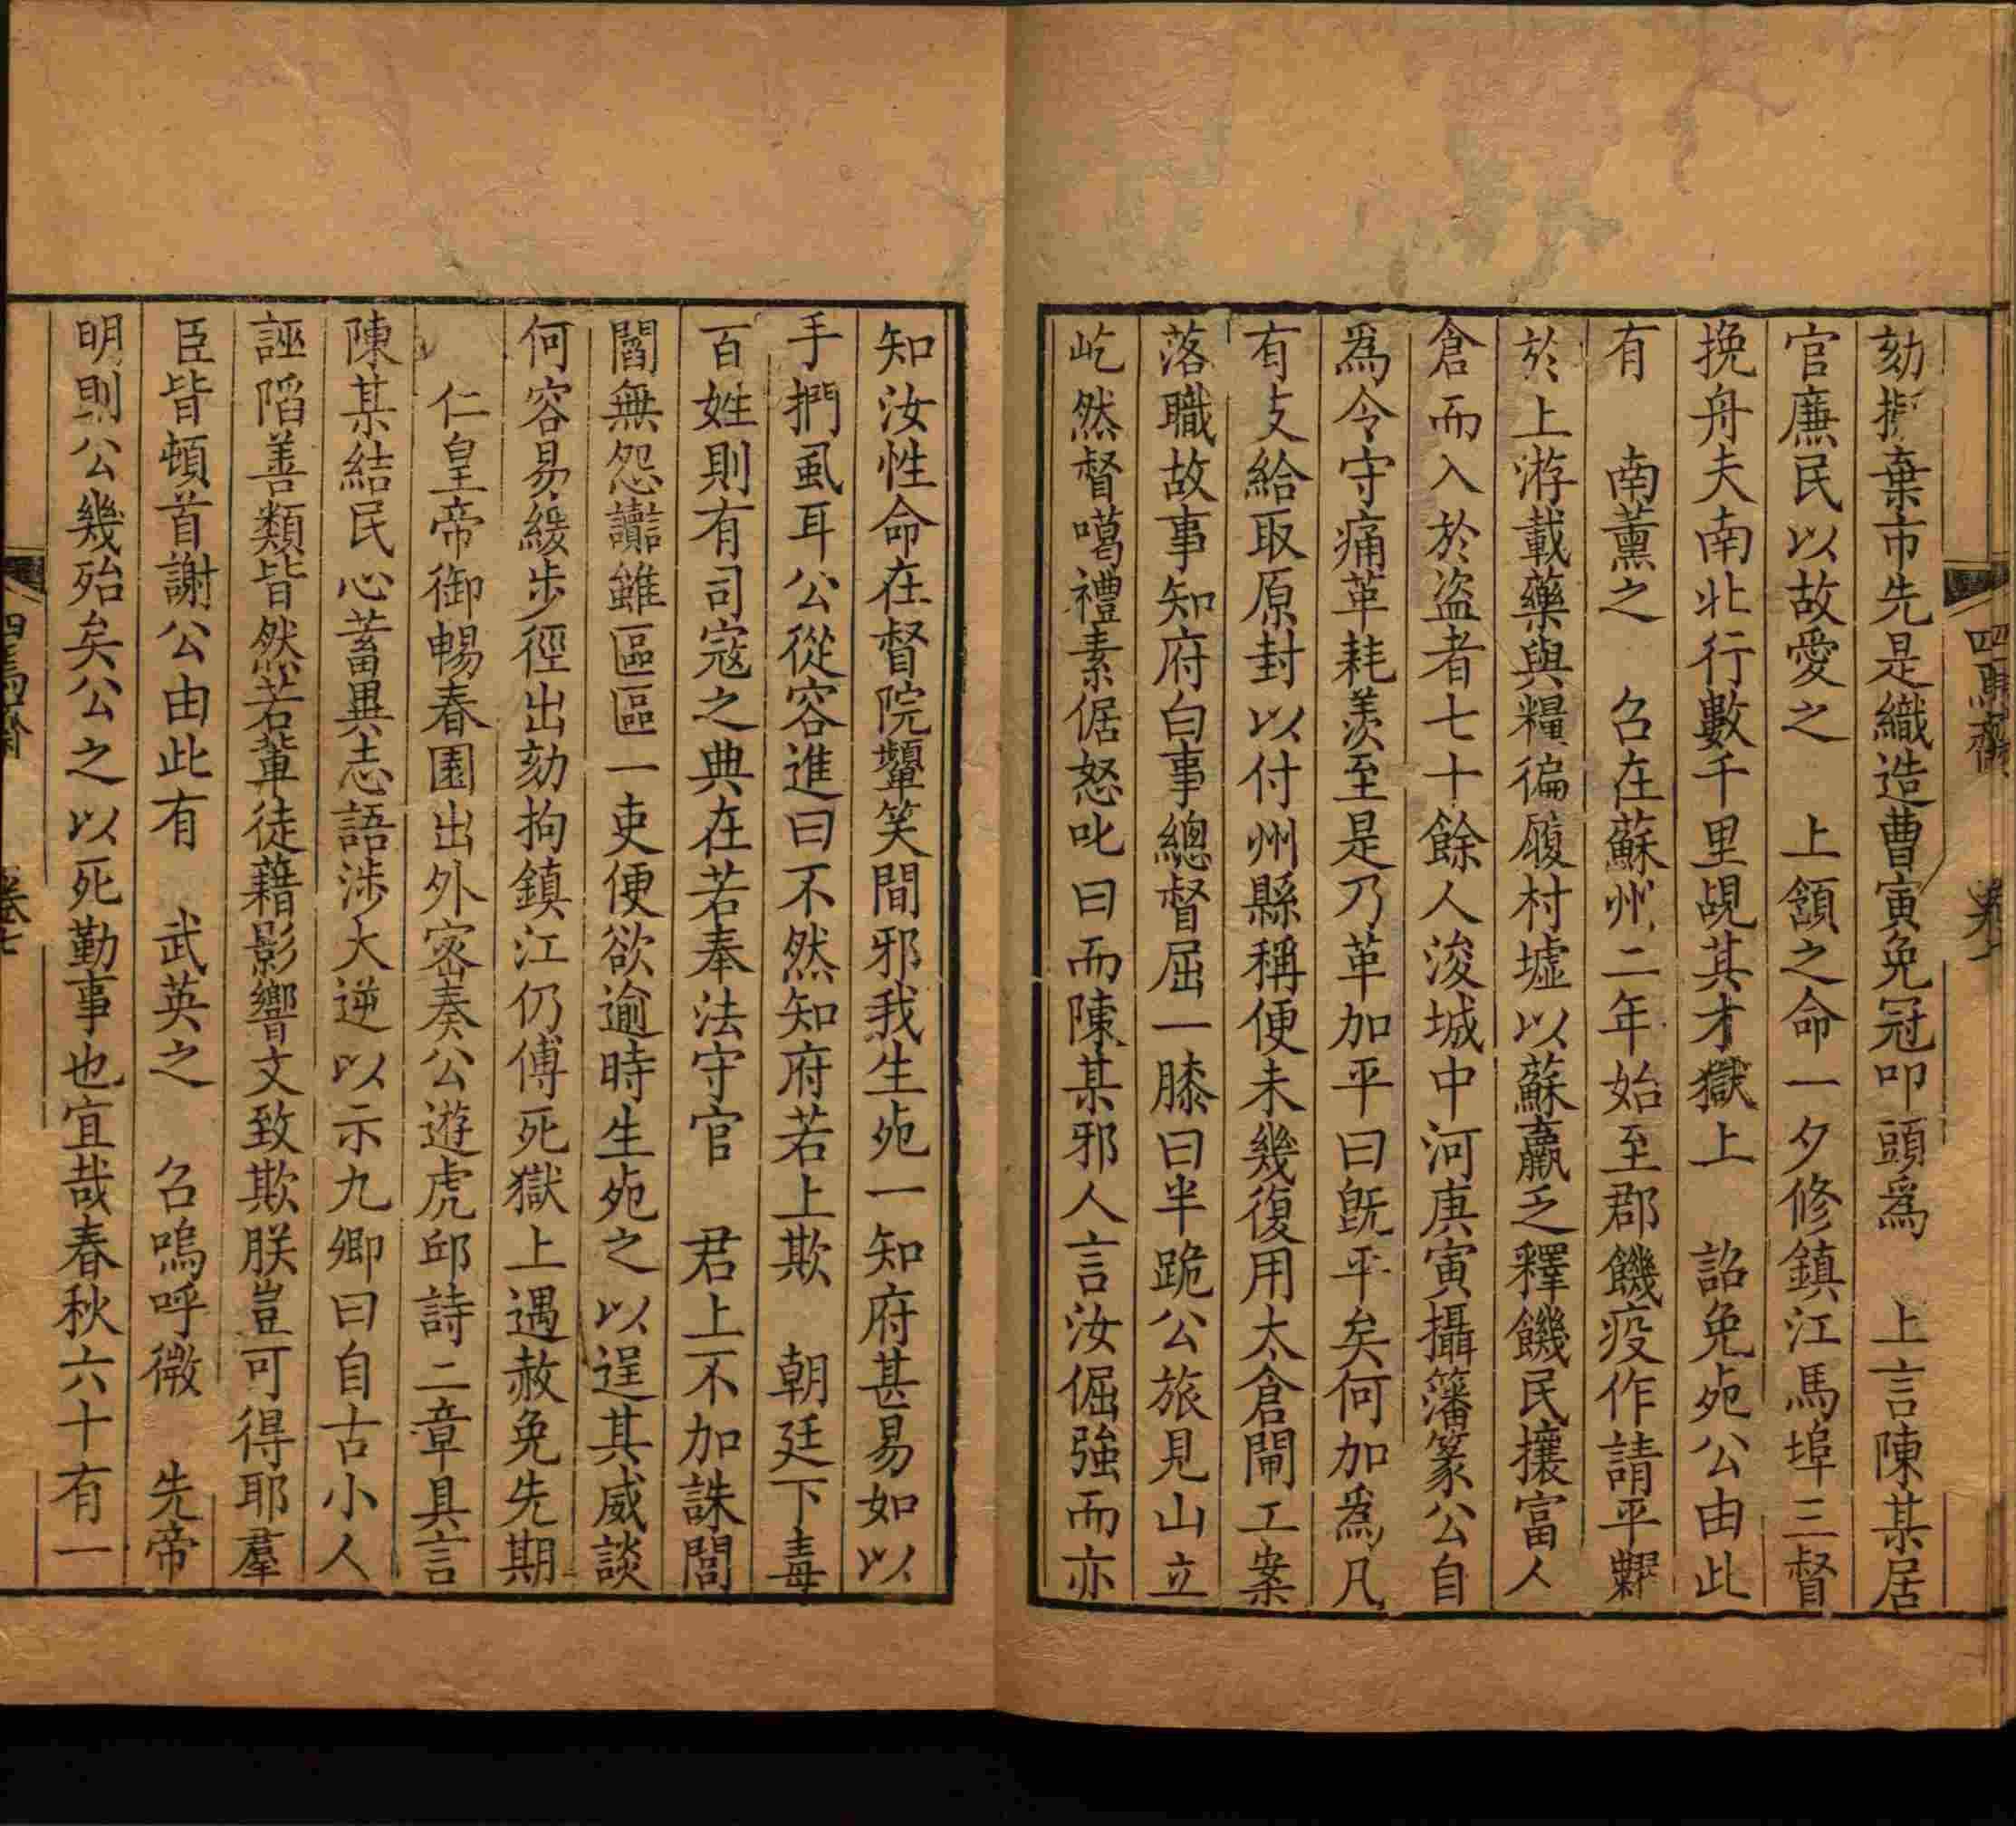 劾擬棄市先是織造曹寅免冠叩頭爲　上言陳某居
官廉民以故愛之　上頷之命一夕修鎮江馬埠三督
挽舟夫南北行數千里覘其才獄上　詔免死公由此
有　南薰之　召在蘇州二年始至郡饑疫作請平糶
於上游載藥與糧徧履村墟以蘇羸乏釋饑民攘富人
倉而入於盜者七十餘人浚城中河庚寅攝藩篆公自
爲令守痛革耗羨至是乃革加平曰旣平矣何加爲凡
有支給取原封以付州縣稱便未幾復用太倉閘工案
落職故事知府白事總督屈一膝曰半跪公旅見山立
屹然督噶禮素倨怒叱曰而陳某邪人言汝倔強而亦
知汝性命在督院顰笑間邪我生死一知府甚易如以
手捫虱耳公從容進曰不然知府若上欺　朝廷下毒
百姓則有司寇之典在若奉法守官　君上不加誅閭
閻無怨讟雖區區一吏便欲逾時生死之以逞其威談
何容易緩步徑出劾拘鎮江仍傅死獄上遇赦免先期
仁皇帝御暢春園出外密奏公遊虎邱詩二章具言
陳某結民心蓄異志語涉大逆以示九卿曰自古小人
誣陷善類皆然若輩徒藉影響文致欺朕豈可得耶羣
臣皆頓首謝公由此有　武英之　召嗚呼微　先帝
明則公幾殆矣公之以死勤事也宜哉春秋六十有一
卷七